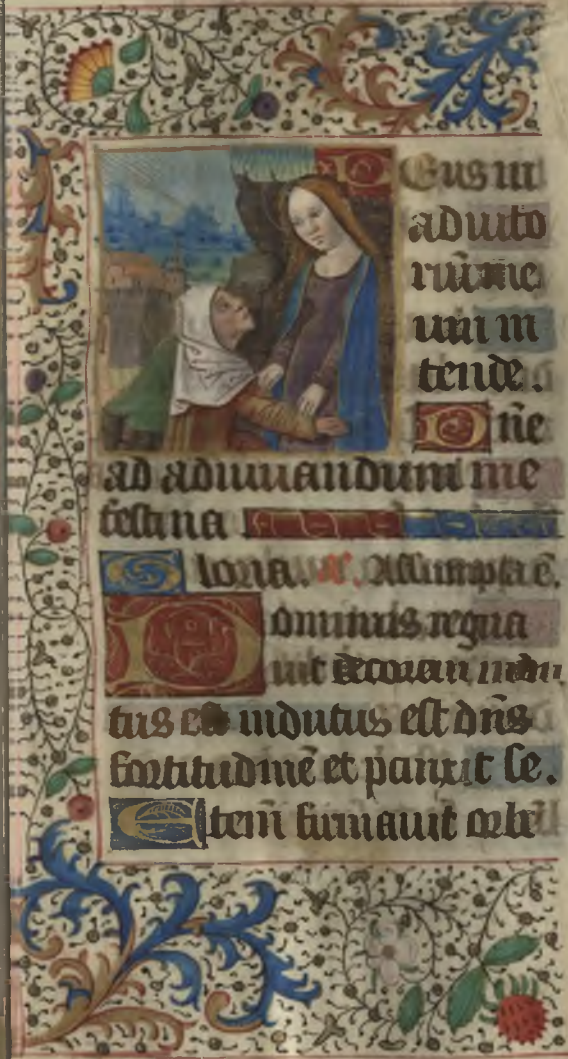 Deus in
adiuto
riū me
um in
tende.
Dñe
ad adiuuandum me
festina
Gloria. A. Assumpta ē.
Dominus regna
uit decorem indu
tus est indutus est dñs
fortitudinē et p̱inxit se.
Eteni firmauit orbē